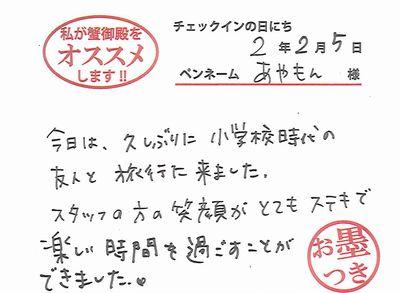 私が蟹御殿を
オススメ
します!!
チェックインの日にち
2年2月5日
ペンネーム あやもん 様
今日は、久しぶりに小学校時代の
友人と旅行に来ました。
スタッフの方の笑顔がとてもステキで
楽しい時間を過ごすことが
できました。
お墨
つき